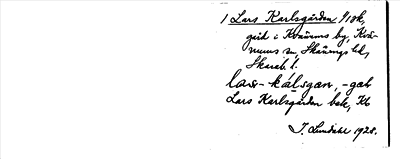 1 Lars Karlsgården 1/10 k,
gård i Kvänums by, Kvä-
nums sn, Skånings hd,
Skarab. l.
las- kálsgan, -gaḷ
Lars Karlsgården bek, Kb
J. Lundahl 1928.